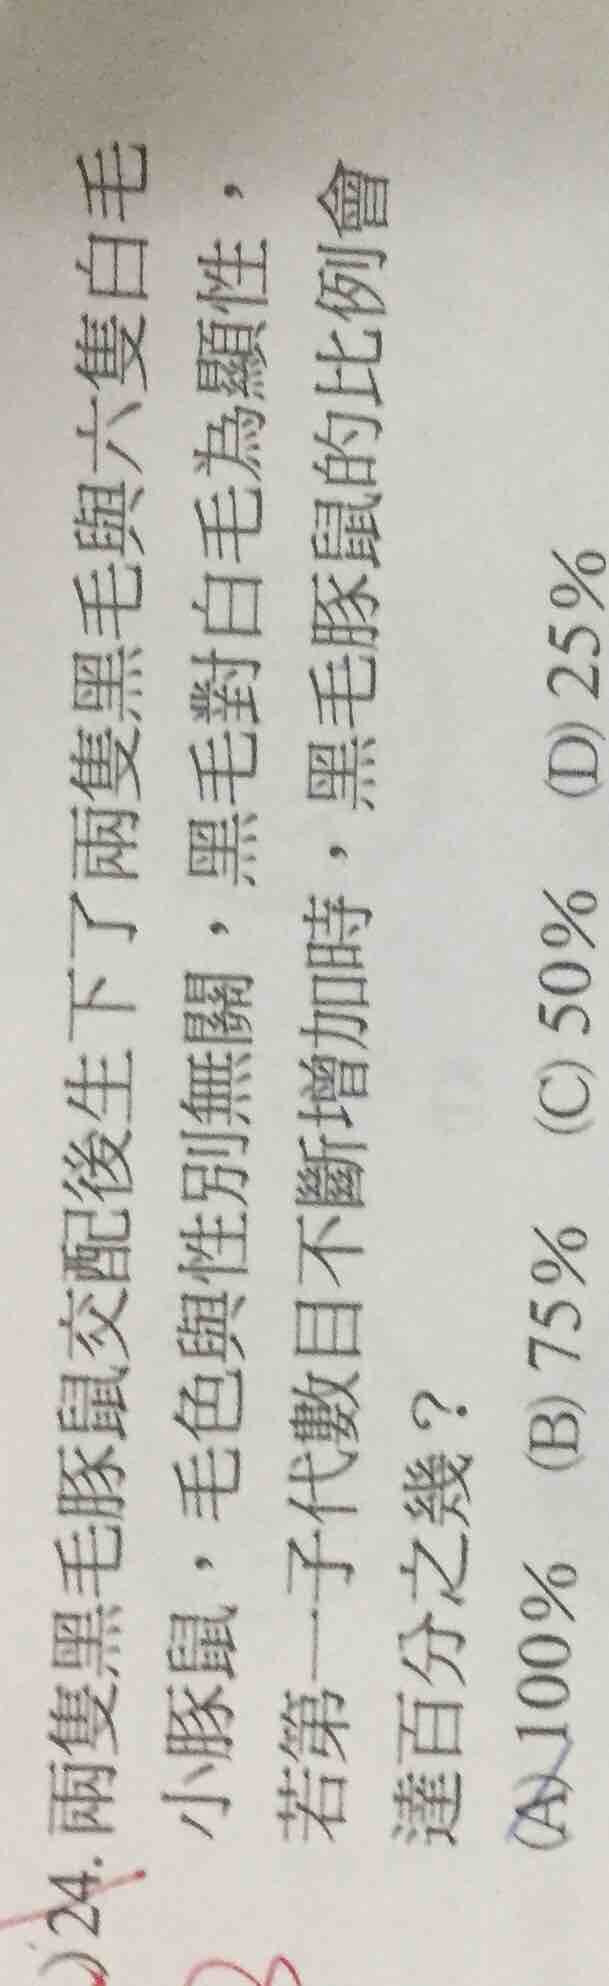 )24. 兩隻黑毛豚鼠交配後生下了兩隻黑毛與六隻白毛
小豚鼠，毛色與性別無關，黑毛對白毛為顯性，
若第一子代數目不斷增加時，黑毛豚鼠的比例會
達百分之幾？
(A) 100% (B) 75% (C) 50% (D) 25%